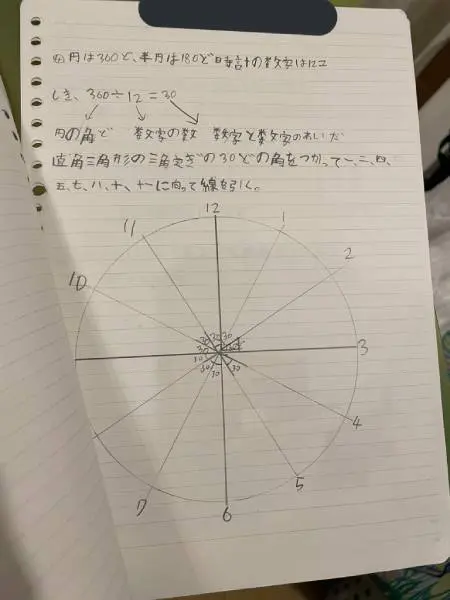 円は360ど、半円は180ど時計の数字は12こ
しき、360÷12=30
円の角ど 数字の数 数字と数字のあいだ
直角三角形の三角定ぎの30どの角をつかって一、二、四、
五、七、八、十、十一に向って線を引く。
12
11
1
10
2
30 30 30
30
30
3
30
30 30 30
4
7
5
6